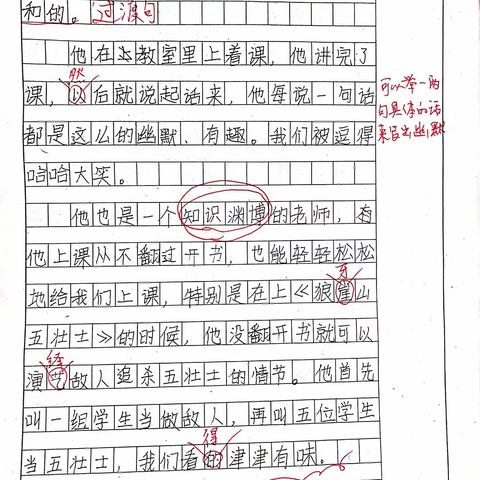 和的。 过渡句
他在教室里上着课，他讲完了
然
课，以后就说起话来，他每说一句话
可以举一两
句具体的话
来写出幽默
都是这么的幽默、有趣。我们被逗得
哈哈大笑。
他也是一个知识渊博的老师，
他上课从不翻过开书，也能轻轻松松
牙
地给我们上课，特别是在上《狼崖山
五壮士》的时候，他没翻开书就可以
绎
演艺敌人追杀五壮士的情节。他首先
叫一组学生当做敌人，再叫五位学生
得
当五壮士，我们看的津津有味。